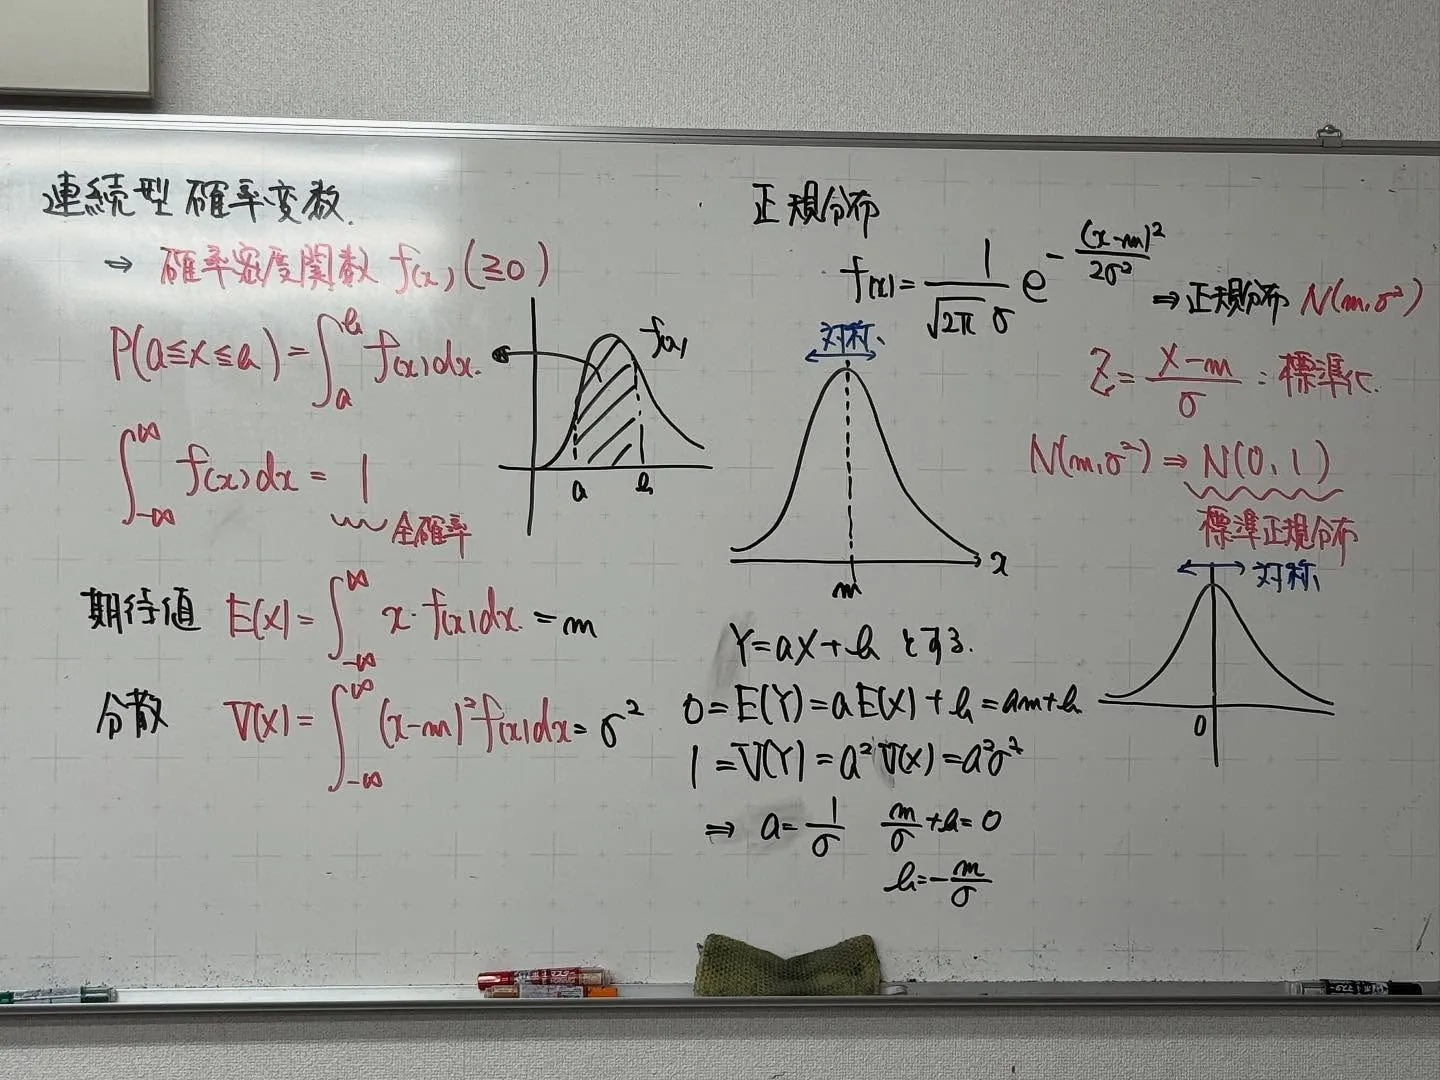 連続型確率変数.
⇒ 確率密度関数 f(x) (≧0)
P(a≦X≦a) = ∫_a^b f(x)dx.
f(x)
a b
∫_{-∞}^{∞} f(x)dx = 1
全確率
期待値 E(X) = ∫_{-∞}^{∞} x・f(x)dx = m
分散 V(X) = ∫_{-∞}^{∞} (x-m)²f(x)dx = σ²
正規分布
f(x) = \frac{1}{\sqrt{2π} σ} e^{-\frac{(x-m)²}{2σ²}}
⇒ 正規分布 N(m, σ²)
対称
m
x
Z = \frac{X-m}{σ} : 標準化.
N(m, σ²) ⇒ N(0, 1)
標準正規分布
対称
0
Y = aX + b とする.
0 = E(Y) = aE(X) + b = am + b
1 = V(Y) = a²V(X) = a²σ²
⇒ a = \frac{1}{σ} \frac{m}{σ} + b = 0
b = -\frac{m}{σ}